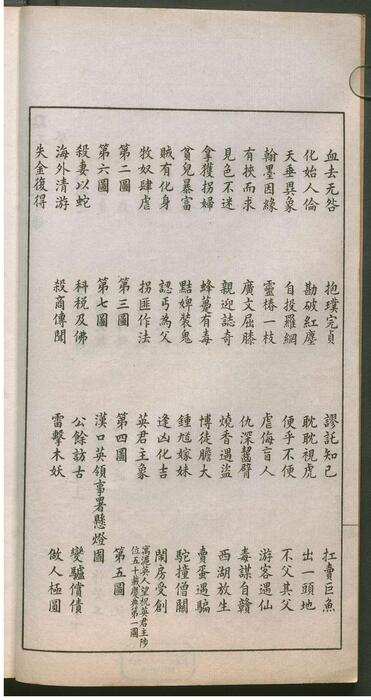 血去无咎 抱璞完貞 謬託知己 扛賣巨魚
化始人倫 勘破紅塵 耽耽視虎 出一頭地
天垂異象 自投羅網 便乎不便 不父其父
翰墨因緣 靈椿一枝 虐侮盲人 游客遇仙
有挾而求 廣文屈膝 仇深齧臂 毒謀自
見色不迷 親迎誌奇 燒香遇盜 西湖放生
拿獲拐婦 蜂蠆有毒 博徒膽大 賣蛋遇騙
貧兒暴富 黠婢裝鬼 鍾馗嫁妹 駝撞僧關
賊有化身 認丐為父 逢凶化吉 鬧房受創
牧奴肆虐 拐匪作法 英君主象 寓滬英人望祝英君主陟
位五十載慶典第一圖
第二圖 第三圖 第四圖 第五圖
第六圖 第七圖 漢口英領事署懸燈圖
殺妻以蛇 科稅及佛 公餘訪古 變驢償債
海外清游 殺商傳聞 雷擊木妖 做人極圓
失金復得